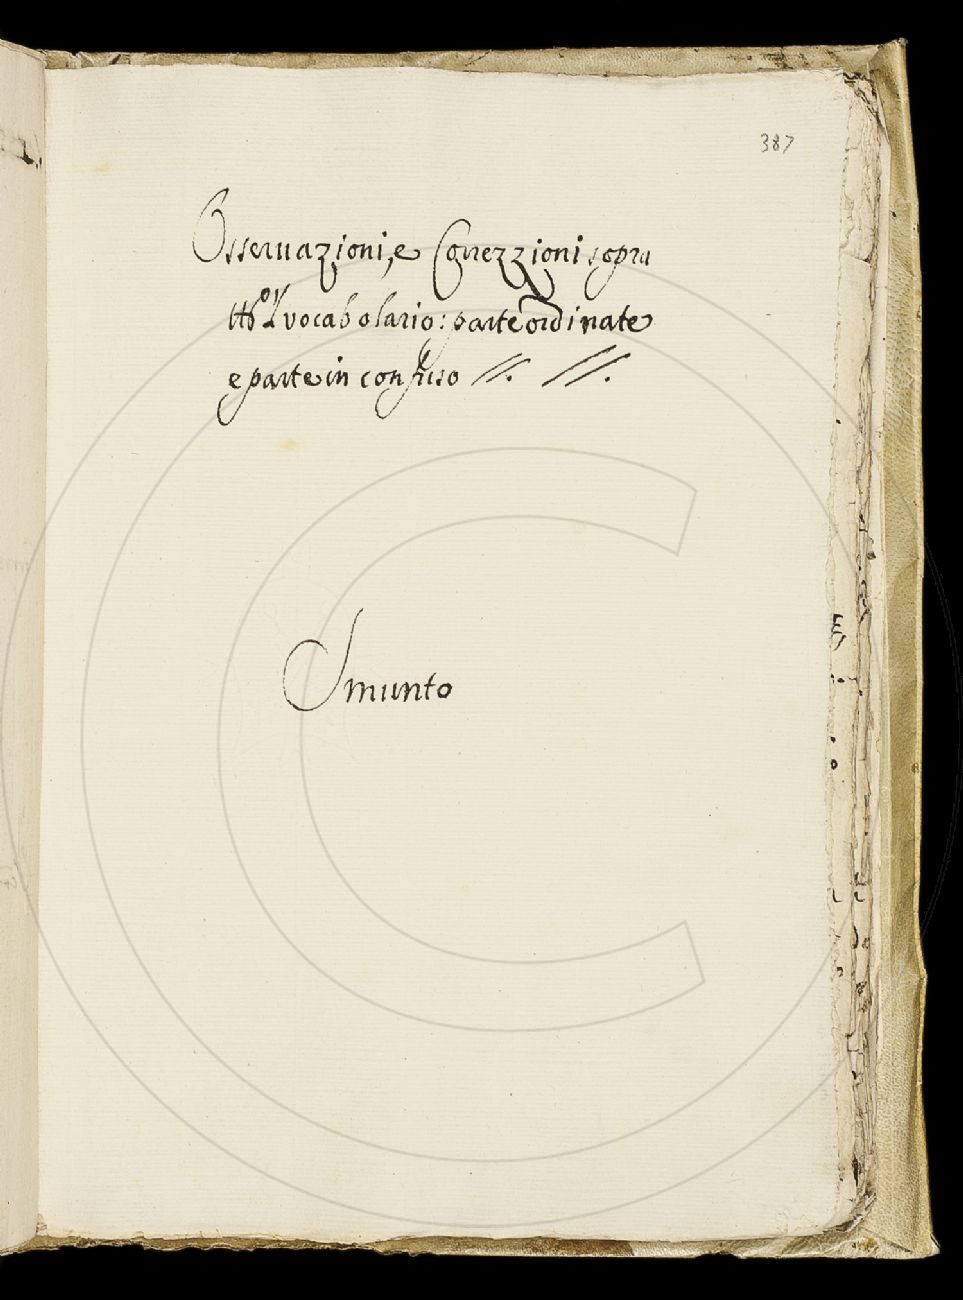 387
Osseruazioni, e Correzzioni sopra
tt.º il vocabolario: parte ordinate
e parte in confuso //. //.
Smunto